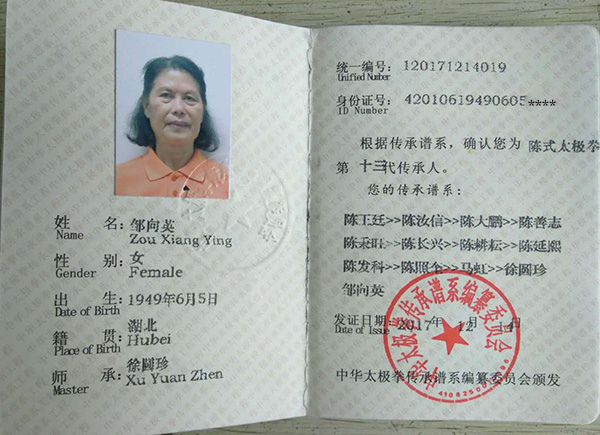 姓 名：邹向英
Name Zou Xiang Ying
性 别：女
Gender Female
出 生：1949年6月5日
Date of Birth
籍 贯：湖北
Place of Birth Hubei
师 承：徐圆珍
Master Xu Yuan Zhen
统一编号：120171214019
Unified Number
身份证号：42010619490605****
ID Number
根据传承谱系，确认您为 陈式太极拳
第 十三代传承人。
您的传承谱系：
陈王廷>>陈汝信>>陈大鹏>>陈善志
陈秉旺>>陈长兴>>陈耕耘>>陈延熙
陈发科>>陈照奎>>马虹>>徐圆珍
邹向英
发证日期：2017年 12 月 14日
Date of Issue
中华太极拳传承谱系编纂委员会
中华太极拳传承谱系编纂委员会颁发